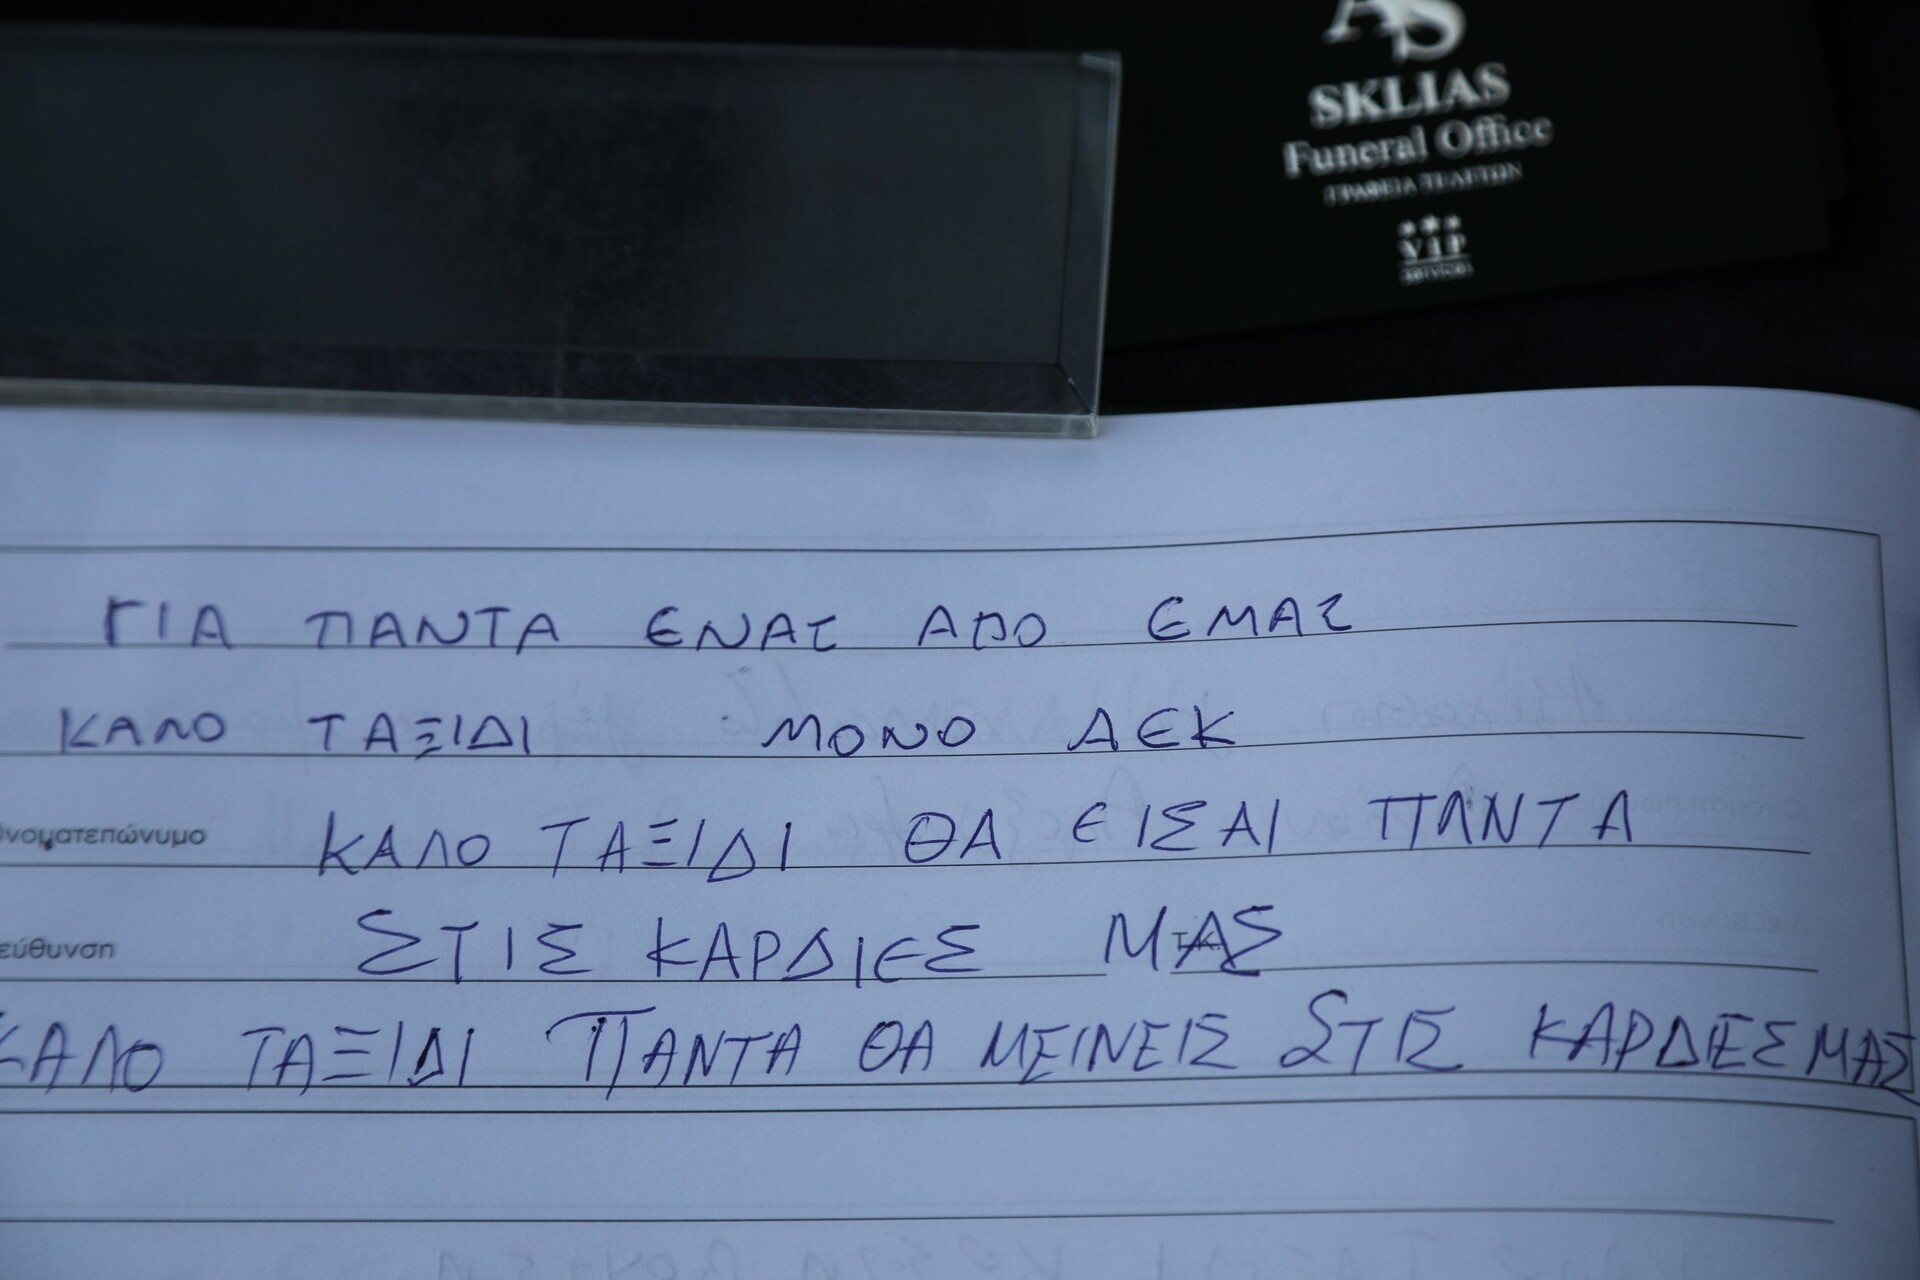 AS
SKLIAS
Funeral Office
ΓΡΑΦΕΙΑ ΤΕΛΕΤΩΝ
VIP
services
ΓΙΑ ΠΑΝΤΑ ΕΝΑΣ ΑΠΟ ΕΜΑΣ
ΚΑΛΟ ΤΑΞΙΔΙ ΜΟΝΟ ΑΕΚ
Ονοματεπώνυμο ΚΑΛΟ ΤΑΞΙΔΙ ΘΑ ΕΙΣΑΙ ΠΑΝΤΑ
εύθυνση ΣΤΙΣ ΚΑΡΔΙΕΣ Τ.Κ. ΜΑΣ
ΚΑΛΟ ΤΑΞΙΔΙ ΠΑΝΤΑ ΘΑ ΜΕΙΝΕΙΣ ΣΤΙΣ ΚΑΡΔΙΕΣ ΜΑΣ